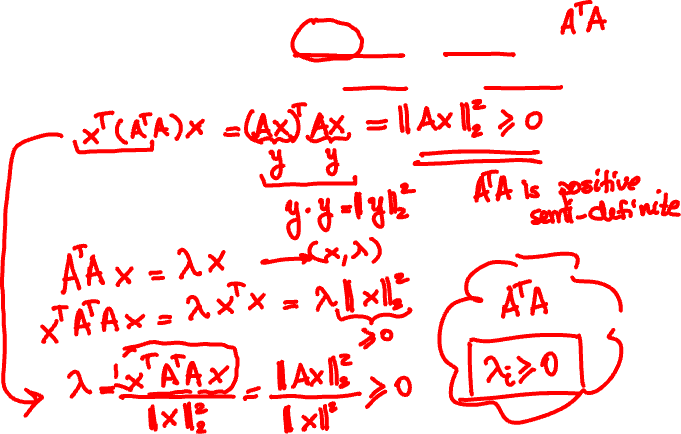 AᵀA
xᵀ(AᵀA)x = (Ax)ᵀ Ax = ‖Ax‖₂² ≥ 0
y y
y·y = ‖y‖₂²
AᵀA is positive
semi-definite
AᵀA x = λx → (x, λ)
xᵀAᵀAx = λxᵀx = λ‖x‖₂²
≥0
λ = xᵀAᵀAx / ‖x‖₂² = ‖Ax‖₂² / ‖x‖² ≥ 0
AᵀA
λᵢ ≥ 0